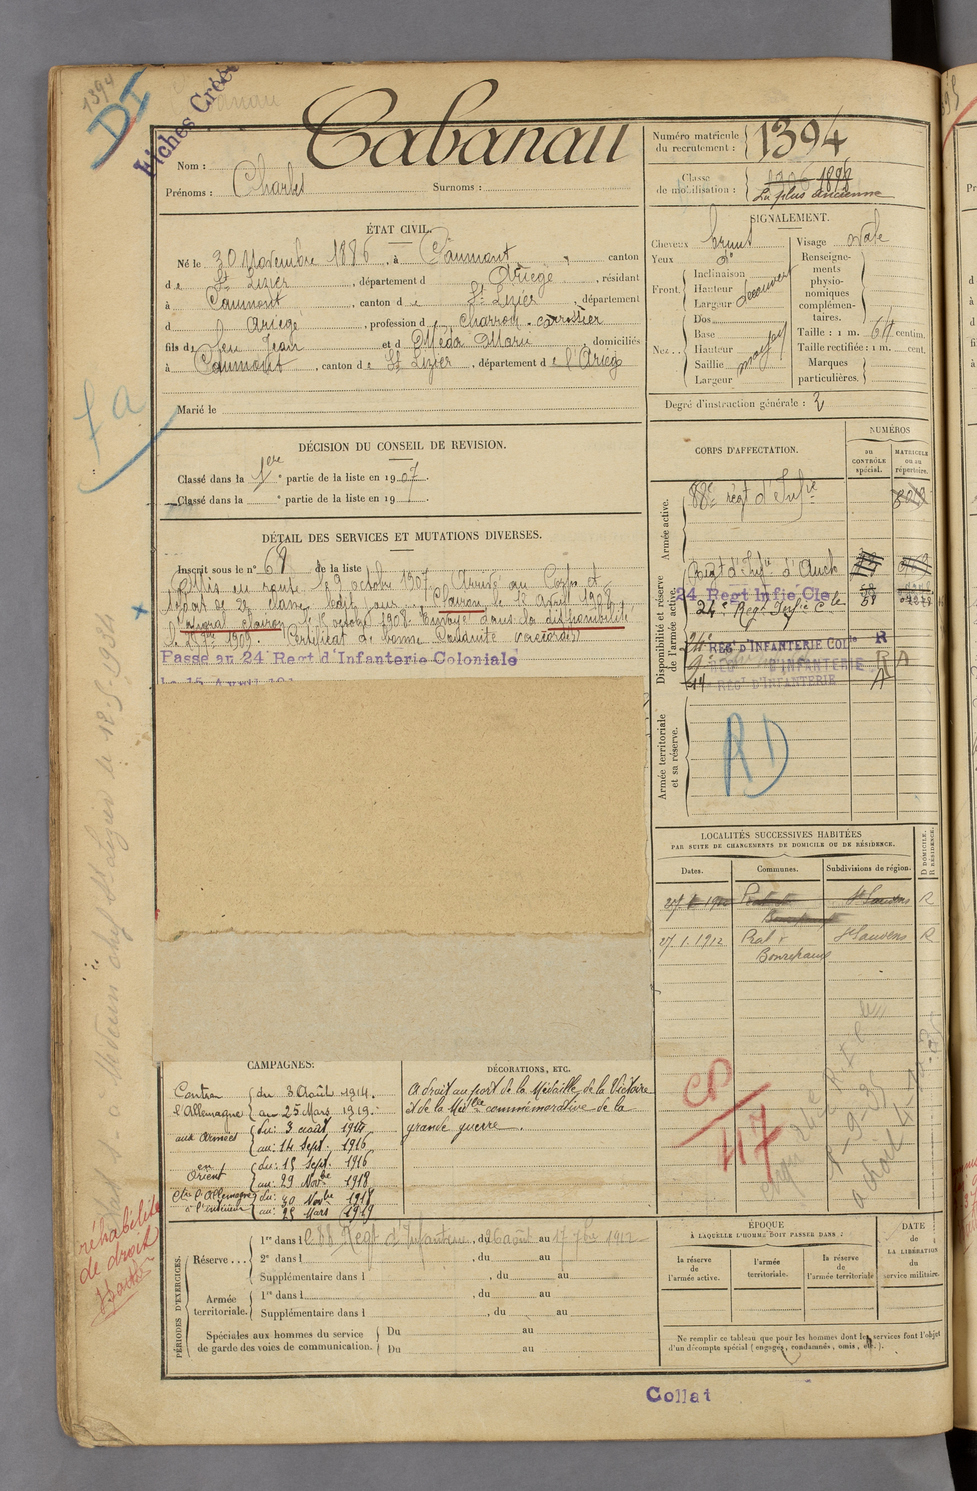 1394
DI
Fiches Créées
Nom :
Cabanau
Prénoms :
Charles
Surnoms :
Numéro matricule
du recrutement :
1394
Classe
de mobilisation :
1906 1896
La plus ancienne
ÉTAT CIVIL.
Né le 30 Novembre 1886, à Caumont, canton
de St Lizier, département d Ariège, résidant
à Caumont, canton de St Lizier, département
d Ariège, profession d charron-carrossier
fils de feu Jean et d Méda Marie, domiciliés
à Caumont, canton de St Lizier, département de l'Ariège
Marié le
SIGNALEMENT.
Cheveux bruns
Yeux d°
Front.
Inclinaison
Hauteur
Largeur
découvert
Nez..
Dos
Base
Hauteur
Saillie
Largeur
moyen
Visage ovale
Renseigne-
ments
physio-
nomiques
complémen-
taires.
Taille : 1 m. 64 centim.
Taille rectifiée : 1 m. cent.
Marques
particulières.
Degré d'instruction générale : 2
fa
DÉCISION DU CONSEIL DE REVISION.
Classé dans la 1ere partie de la liste en 1907.
Classé dans la e partie de la liste en 19
DÉTAIL DES SERVICES ET MUTATIONS DIVERSES.
Inscrit sous le n° 68 de la liste
Mis en route le 9 octobre 1907. Arrivé au Corps et
soldat de 2e classe ledit jour. Clairon le 12 avril 1908
Caporal clairon le octobre 1908. Envoyé dans la disponibilité
le 1909. Certificat de bonne conduite "accordé"
Passé au 24 Regt d'Infanterie Coloniale
le 15 Avril 191
CORPS D'AFFECTATION.
NUMÉROS
DU
CONTRÔLE
spécial.
MATRICULE
ou au
répertoire.
Armée active.
88e régt d'Infie
Disponibilité et réserve
de l'armée active.
Regt d'Infie d'Auch
24 Regt Infie Cle
24e Regt Infie Cle
24e REGt D'INFANTERIE COLle R
9e REGt D'INFANTERIE R A
14 REGt D'INFANTERIE A
Armée territoriale
et sa réserve.
RD
LOCALITÉS SUCCESSIVES HABITÉES
PAR SUITE DE CHANGEMENTS DE DOMICILE OU DE RÉSIDENCE.
Dates.
Communes.
Subdivisions de région.
D DOMICILE.
R RÉSIDENCE.
R
27.1.1912 Prat & St Gaudens R
Bonrepaux
CAMPAGNES:
Contre
l'Allemagne
du 3 Août 1914.
au 25 Mars 1919.
aux Armées
du: 3 août 1914
au: 14 Sept. 1916
en
Orient
du: 15 Sept. 1916
au: 29 Novbre 1918
Cte l'Allemagne
à l'intérieur
du: 30 Novbre 1918
au: 25 Mars 1919
DÉCORATIONS, ETC.
A droit au port de la Médaille de la Victoire
et de la Mlle commémorative de la
grande guerre.
CP
47
réhabilité
de droit
PÉRIODES D'EXERCICES.
Réserve ...
1re dans l e 88 Regt d'Infanterie, du 26 août au 17 7bre 1912
2e dans l , du au
Supplémentaire dans l , du au
Armée
territoriale.
1re dans l , du au
Supplémentaire dans l , du au
Spéciales aux hommes du service
de garde des voies de communication.
Du au
Du au
ÉPOQUE
À LAQUELLE L'HOMME DOIT PASSER DANS :
la réserve
de
l'armée active.
l'armée
territoriale.
la réserve
de
l'armée territoriale
DATE
de
LA LIBÉRATION
du
service militaire.
Ne remplir ce tableau que pour les hommes dont les services font l'objet
d'un décompte spécial (engagés, condamnés, omis, etc.).
Collat